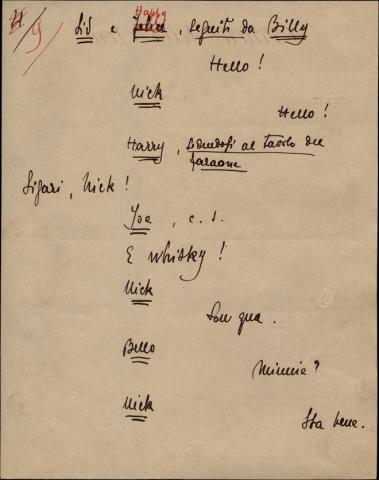 9
Happy
Sid e , seguiti da Billy
Hello!
Nick
Hello!
Harry, sedendosi al tavolo del
faraone
Sigari, Nick!
Joe, c. s.
E whisky!
Nick
Son qua.
Bello
Minnie?
Nick
Sta bene.